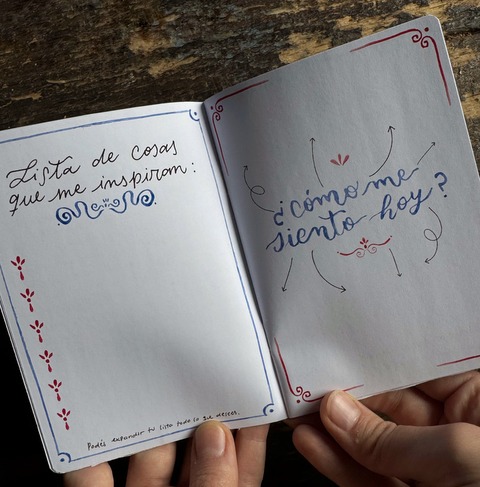 Lista de cosas
que me inspiran:
Podés expandir tu lista todo lo que desees.
¿cómo me
siento hoy?